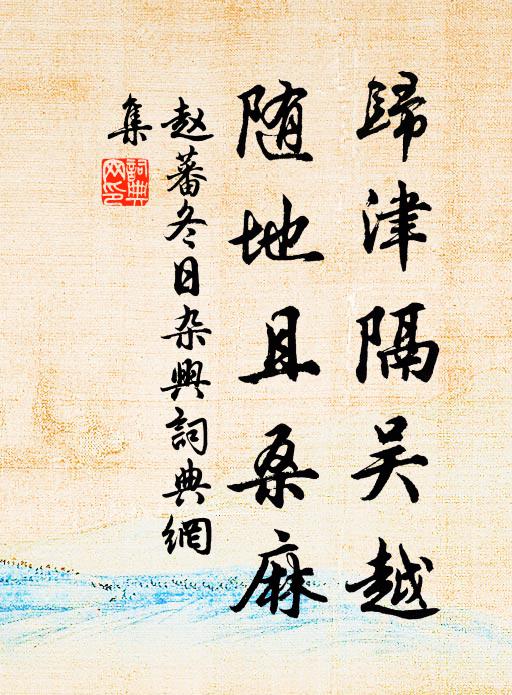 歸津隔吴越
随地且桑麻
赵蕃冬日杂興詞典網
集
詞典
网印